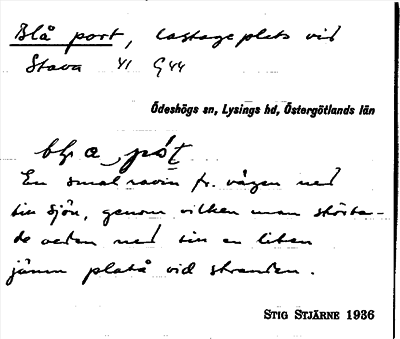 Blå port, lastageplats vid
Stava 41 G44
Ödeshögs sn, Lysings hd, Östergötlands län
En smal ravin fr. vägen ned
till sjön, genom vilken man störta-
de veden ned till en liten
jämn platå vid stranden.
STIG STJÄRNE 1936